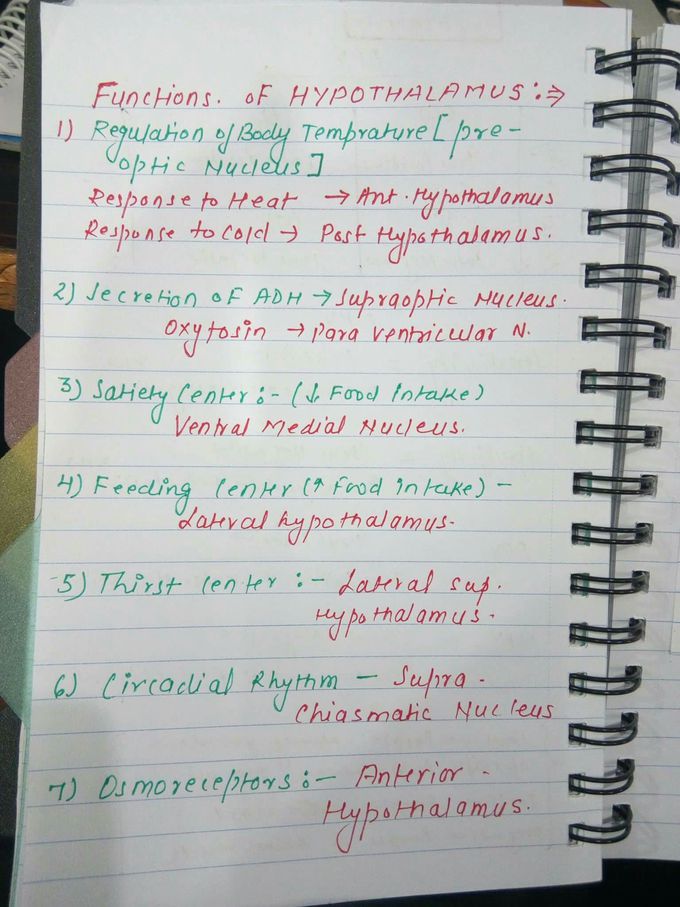 Functions. of HYPOTHALAMUS:⇒
1) Regulation of Body Temprature [pre-
optic Nucleus]
Response to Heat → Ant. Hypothalamus
Response to Cold → Post Hypothalamus.
2) Secretion of ADH → Supraoptic Nucleus.
Oxytosin → Para ventricular N.
3) Satiety Center:- (↓ Food intake)
Ventral Medial Nucleus.
4) Feeding Center (↑ Food intake) -
Lateral hypothalamus.
5) Thirst Center :- Lateral sup.
Hypothalamus.
6) Circadial Rhythm - Supra-
Chiasmatic Nucleus
7) Osmoreceptors:- Anterior-
Hypothalamus.